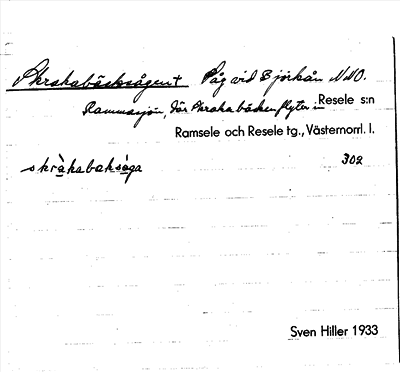 Skrakabäckssågen + Såg vid Björkån NNO.
Rammsjön, där Skrakabäcken flyter in Resele s:n
Ramsele och Resele tg., Västernorrl. l.
skràkabaksåga 302
Sven Hiller 1933